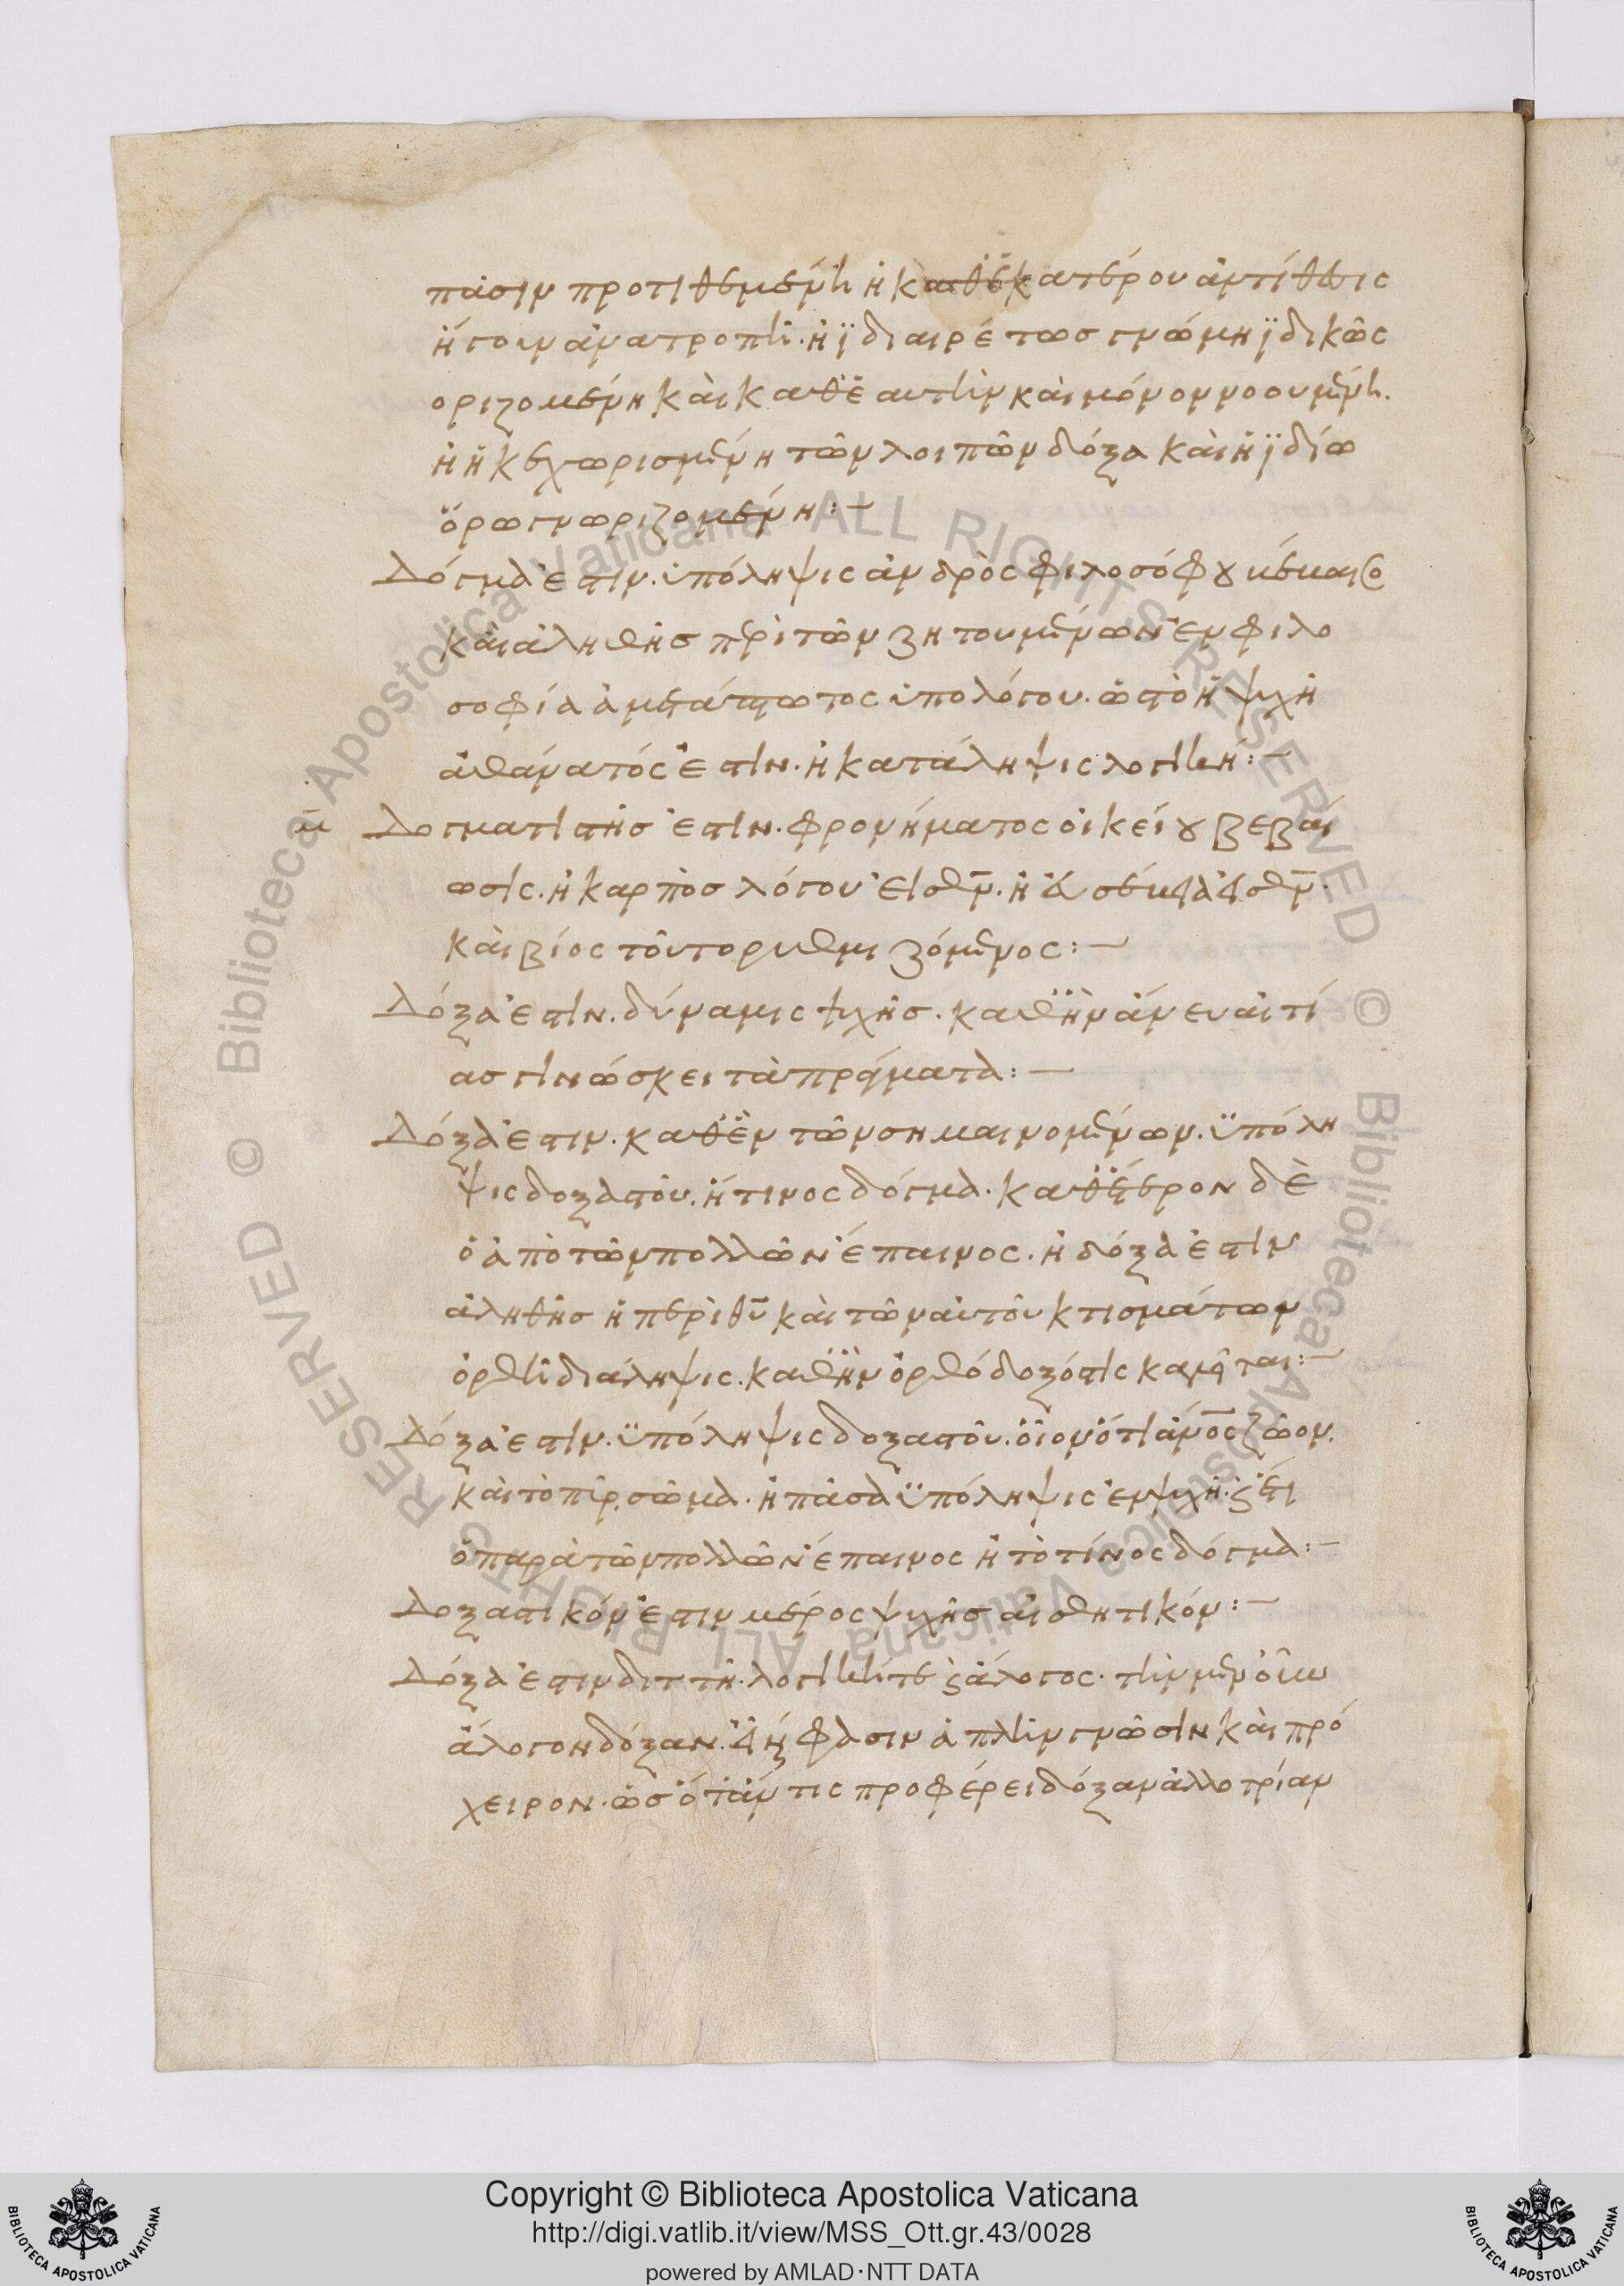 πᾶσιν προτιθεμένη ἡ καθ' ἑκατέρου ἀντίθεσις
ἤγουν ἀνατροπή. ἡ ϊδιαιρέτως γνώμη ϊδικῶς
οριζομένη καὶ καθ' ἑαυτὴν καὶ μόνον νοουμένη.
ἡ ἠκεχωρισμένη τῶν λοιπῶν δόξα καὶ ἡ ϊδίω
ὅρω γνωριζομένη:
Δόγμα ἐστιν. ὑπόληψις ἀνδρὸς φιλοσόφου
καὶ ἀληθὴς περὶ τῶν ζητουμένων ἐν φιλο
σοφία ἀμετάπτωτος ὑπολόγου. ὡς τὸ ἡ ψυχὴ
ἀθάνατός ἐστιν. ἡ κατάληψις λογικὴ:
Δογματιστὴς ἐστιν. φρονήματος οἰκείου βεβαί
ωσις. ἡ καρπὸς λόγου
καὶ βίος τούτο ρυθμιζόμενος:
Δόξα ἐστιν. δύναμις ψυχῆς. καθ' ἣν ἄνευ αἰτί
ας γινώσκει τὰ πράγματα:
Δόξα ἐστιν. καθ' ἓν τῶν σημαινομένων. ϋπόλη
ψις δοξαστοῦ. ἤ τινος δόγμα. καθ' ἕτερον δὲ
ὁ ἀπὸ τῶν πολλῶν ἔπαινος. ἡ δόξα ἐστιν
ἀληθὴς ἡ περὶ θυ καὶ τῶν αὐτοῦ κτισμάτων
ὀρθὴ διάληψις. καθ' ἣν ὀρθόδοξός τις καλεῖται:
Δόξα ἐστιν. ϋπόληψις δοξαστοῦ. οἷον ὅτι ἄνος ζῶον.
καὶ τὸ πῦρ, σῶμα. ἡ πᾶσα ϋπόληψις ἐν ψυχῆ. καὶ ἔτι
ὁ παρὰ τῶν πολλῶν ἔπαινος ἡ τὸ τίνος δόγμα:
Δοξαστικόν ἐστιν μέρος ψυχῆς αἰσθητικόν:
Δόξα ἐστιν διττὴ. λογική τε καὶ ἄλογος. τὴν μὲν οὖν
ἄλογον δόξαν. φασιν ἁπλὴν γνῶσιν καὶ πρό
χειρον. ὡς ὅταν τις προφέρει δόξαν ἀλλοτρίαν
Copyright © Biblioteca Apostolica Vaticana
http://digi.vatlib.it/view/MSS_Ott.gr.43/0028
powered by AMLAD·NTT DATA